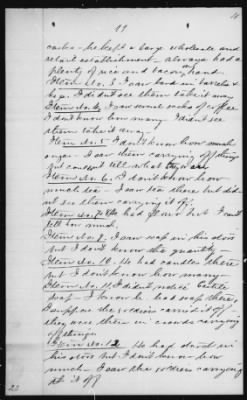 11
sacks - he kept a large wholesale and
retail establishment - always had a
plenty of rice and bacon on hand.
Item No. 3 I saw lard in barrels &
kegs. I didn't see them take it away.
Item No. 4, I saw small sacks of coffee
I don't know how many I didn't see
them take it away.
Item No. 5 I don't know how much
sugar - I saw them carrying off things
but couldn't tell what they were
Item No. 6. I don't know how
much tea - I saw tea there but did-
nt see them carrying it off.
Item No. 7 & 8 He had flour but I can't
tell how much.
Item No. 9. I saw soap in his store
but I don't know the quantity.
Item No. 10. He had candles there
but I don't know how many -
Item No. 11 I didn't notice
soap - I know he had soap there,
I suppose the soldiers carried it off
they were there in crowds carrying
off things
Item No. 12. He had in
his store but I don't know how
much - I saw the soldiers carrying
it off